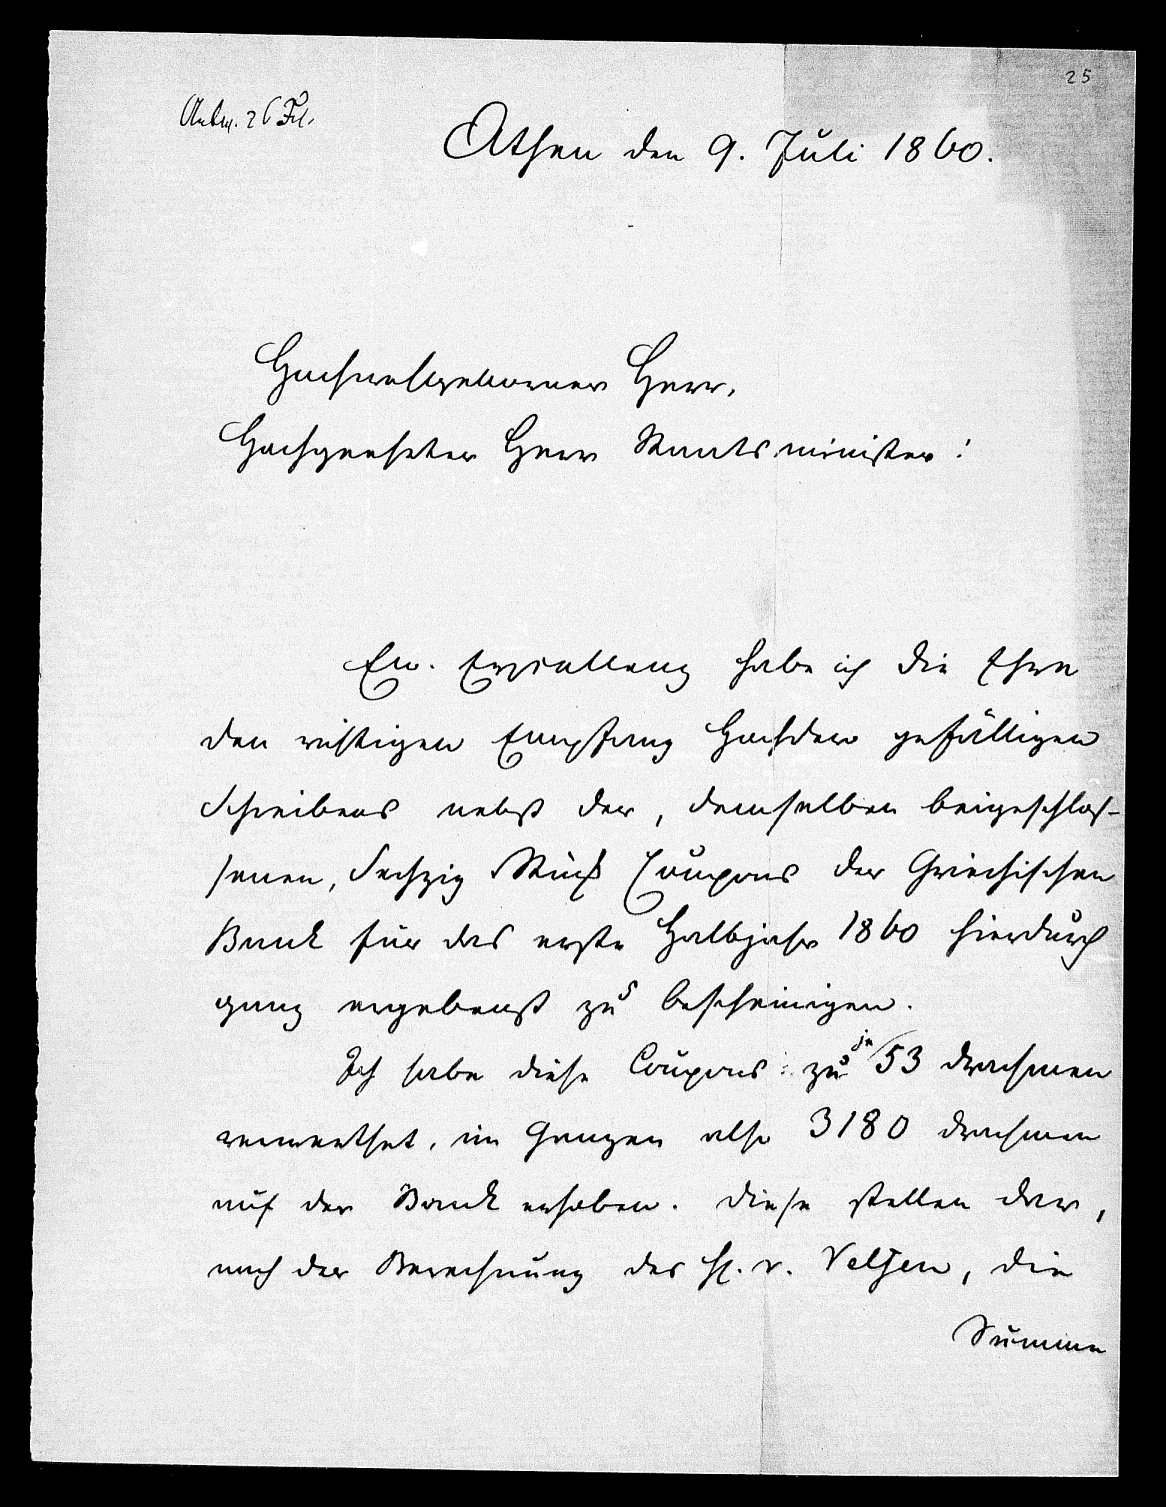 25
Antw. 26 Jul.
Athen den 9. Juli 1860.
Hochwohlgeborner Herr,
Hochgeehrter Herr Staatsminister!
Ew. Excellenz habe ich die Ehre
den richtigen Empfang Hochdero gefälligen
Schreibens nebst der, demselben beigeschlos-
senen, Sechzig Stück Coupons der Griechischen
Bank für das erste Halbjahr 1860 hierdurch
ganz ergebenst zu bescheinigen.
Ich habe diese Coupons zu je 53 Drachmen
verwerthet, im Ganzen also 3180 Drachmen
auf der Bank erhoben. Diese stellen dar,
nach der Berechnung des H. v. Velsen, die
Summe